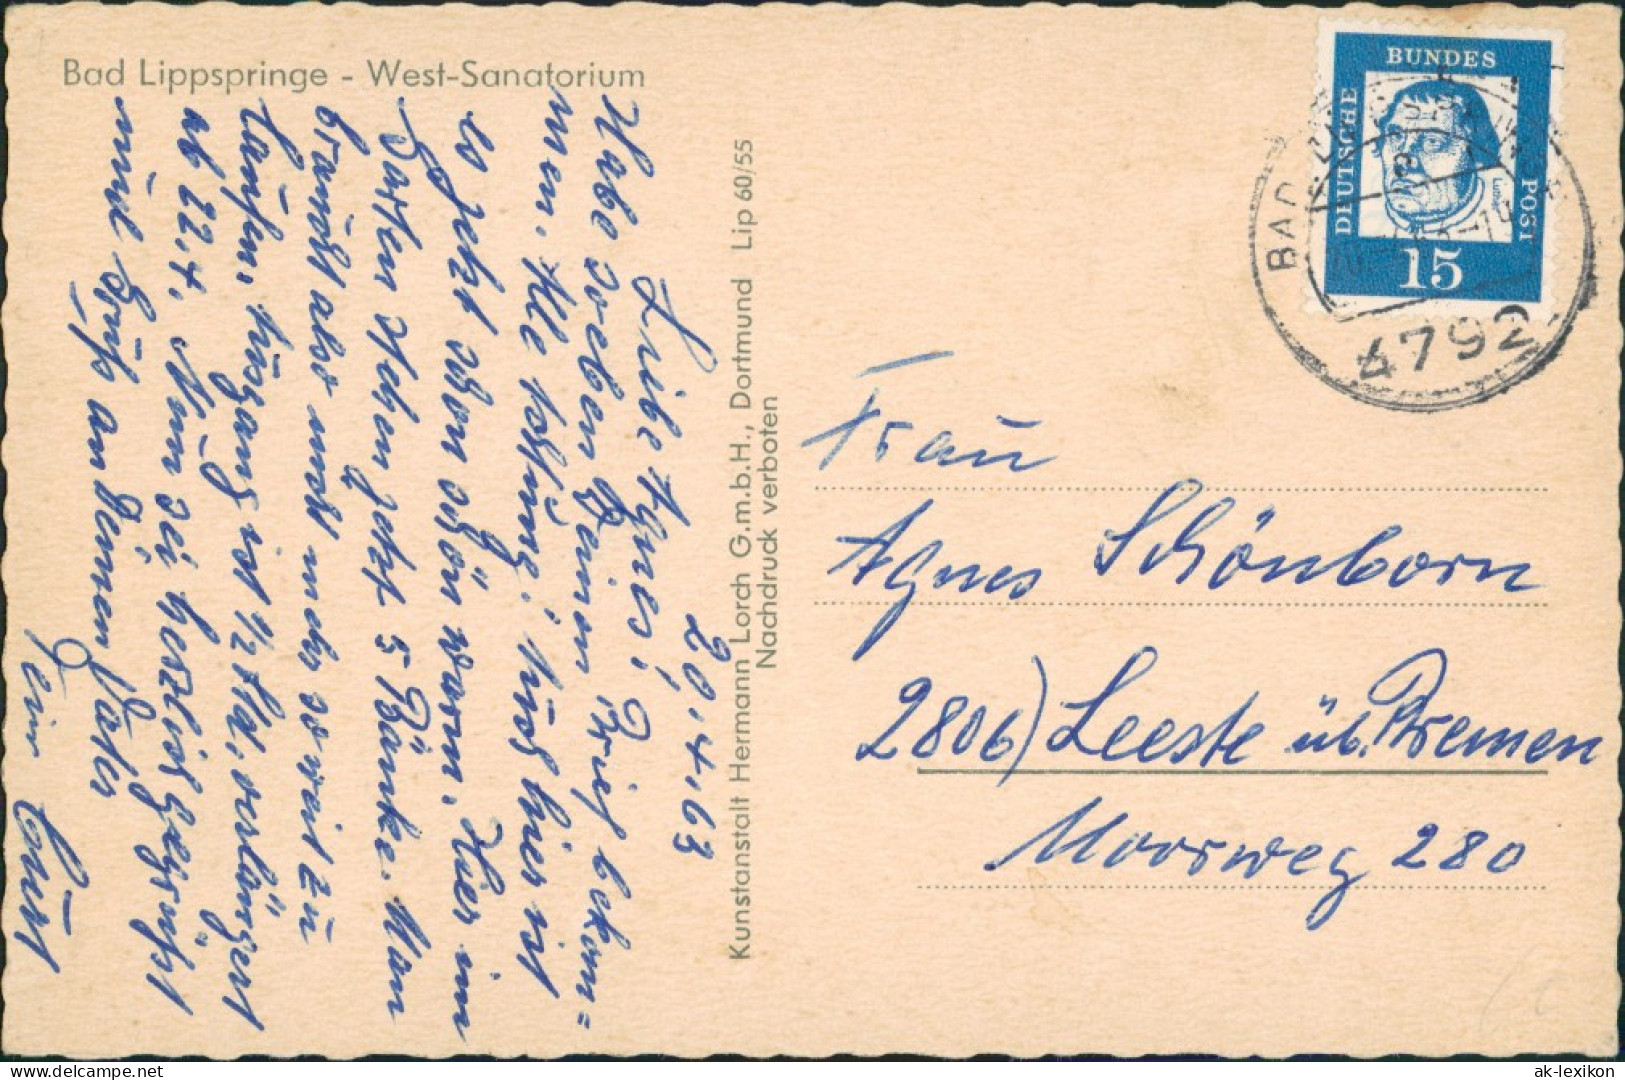 Bad Lippspringe - West-Sanatorium
20.4.63
Liebe Agnes!
Habe soeben Deinen Brief bekom=
men. Alle Achtung! Auch hier ist
es jetzt schon schön warm. Hier im
Garten stehen jetzt 5 Bänke. Man
braucht also nicht mehr so weit zu
laufen. Ausgang ist 1/2 Std. verlängert
ab 22.4. Nun sei herzlich gegrüßt
und Gruß an Deinen Vater
Dein Curt
Kunstanstalt Hermann Lorch G.m.b.H., Dortmund Lip 60/55
Nachdruck verboten
DEUTSCHE
BUNDES
POST
15
BAD
4792
Frau
Agnes Schönborn
2806) Leeste üb. Bremen
Moorweg 280
delcampe.net
ak-lexikon